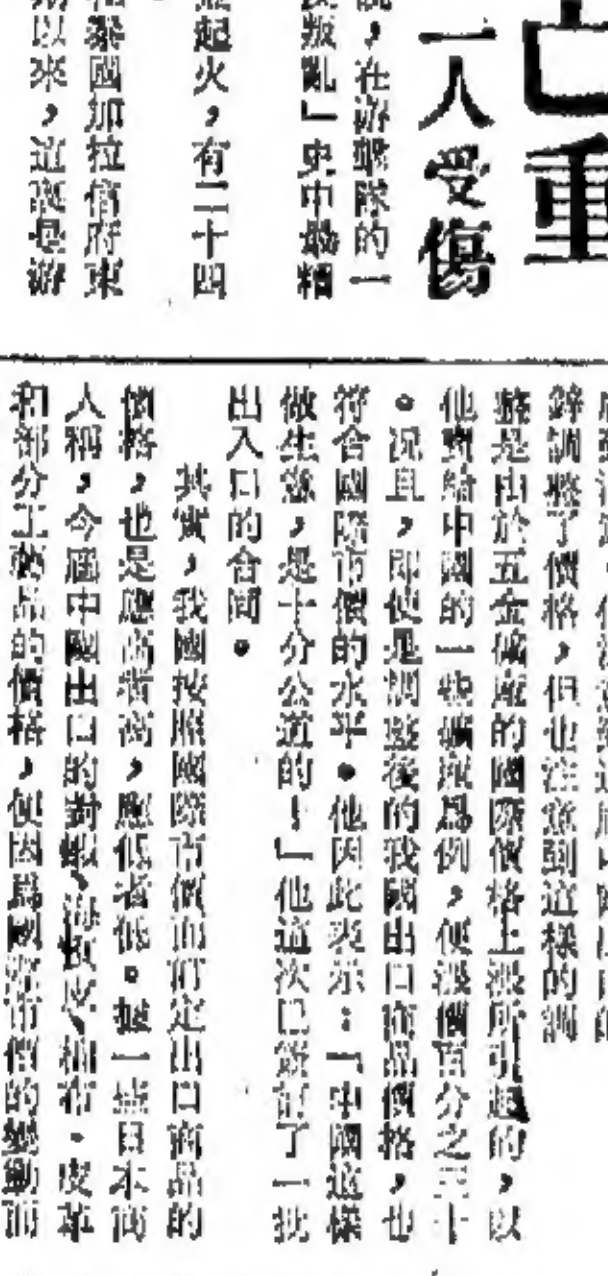 亡重
一人受傷
說，在游擊隊的一
叛亂」史中最精
起火，有二十四
和泰國加拉信府東
以來，這裏是游
鋅調整了價格，但也注意到這樣的調
整是由於五金礦產的國際價格上漲所引起的，以
他賣給中國的一些礦產爲例，便漲價百分之三十
。況且，即使是調整後的我國出口商品價格，也
符合國際市價的水平。他因此表示：「中國這樣
做生意，是十分公道的！」他這次已簽訂了一批
出入口的合同。
其實，我國按照國際市價而訂定出口商品的
價格，也是應高者高，應低者低。據一些日本商
人稱，今屆中國出口的對蝦、海蜇皮、棉布、皮革
和部分工藝品的價格，便因爲國際市價的變動而